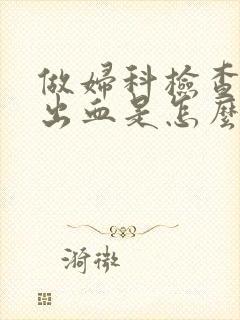 做婦科檢查
出血是怎麼
漪微